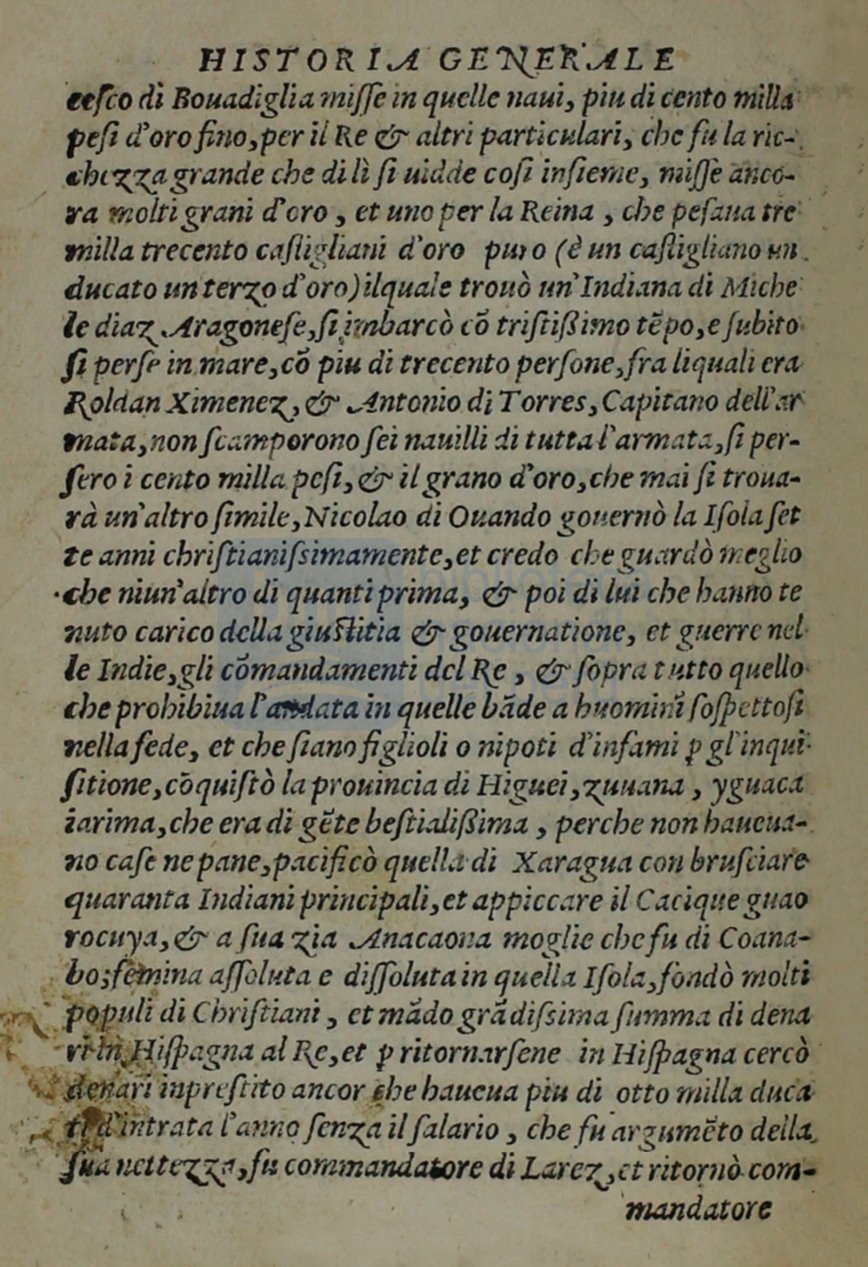 HISTORIA GENERALE
cesco di Bouadiglia misse in quelle naui, piu di cento milla
pesi d'oro fino, per il Re & altri particulari, che fu la ric-
chezza grande che di lì si uidde cosi insieme, missè anco-
ra molti grani d'oro, et uno per la Reina, che pesaua tre
milla trecento castigliani d'oro puro (è un castigliano un
ducato un terzo d'oro) ilquale trouò un'Indiana di Miche
le diaz Aragonese, si imbarcò cõ tristißimo tẽpo, e subito
si perse in mare, cõ piu di trecento persone, fra liquali era
Roldan Ximenez, & Antonio di Torres, Capitano dell'ar
mata, non scamporono sei nauilli di tutta l'armata, si per-
sero i cento milla pesi, & il grano d'oro, che mai si troua-
rà un'altro simile, Nicolao di Ouando gouernò la Isola set
te anni christianissimamente, et credo che guardò meglio
che niun'altro di quanti prima, & poi di lui che hanno te
nuto carico della giustitia & gouernatione, et guerre nel
le Indie, gli cõmandamenti del Re, & sopra tutto quello
che prohibiua l'andata in quelle bãde a huomini sospettosi
nella fede, et che siano figlioli o nipoti d'infami ꝑ gl'inqui
sitione, cõquistò la prouincia di Higuei, zuuana, yguaca
iarima, che era di gẽte bestialißima, perche non haueua-
no case ne pane, pacificò quella di Xaragua con brusciare
quaranta Indiani principali, et appiccare il Cacique guao
rocuya, & a sua zia Anacaona moglie che fu di Coana-
bo; femina assoluta e dissoluta in quella Isola, fondò molti
populi di Christiani, et mãdo grãdissima summa di dena
ri in Hispagna al Re, et ꝑ ritornarsene in Hispagna cercò
denari inprestito ancor che haueua piu di otto milla duca
ti d'intrata l'anno senza il salario, che fu argumẽto della
sua nettezza, fu commandatore di Larez, et ritornò com-
mandatore